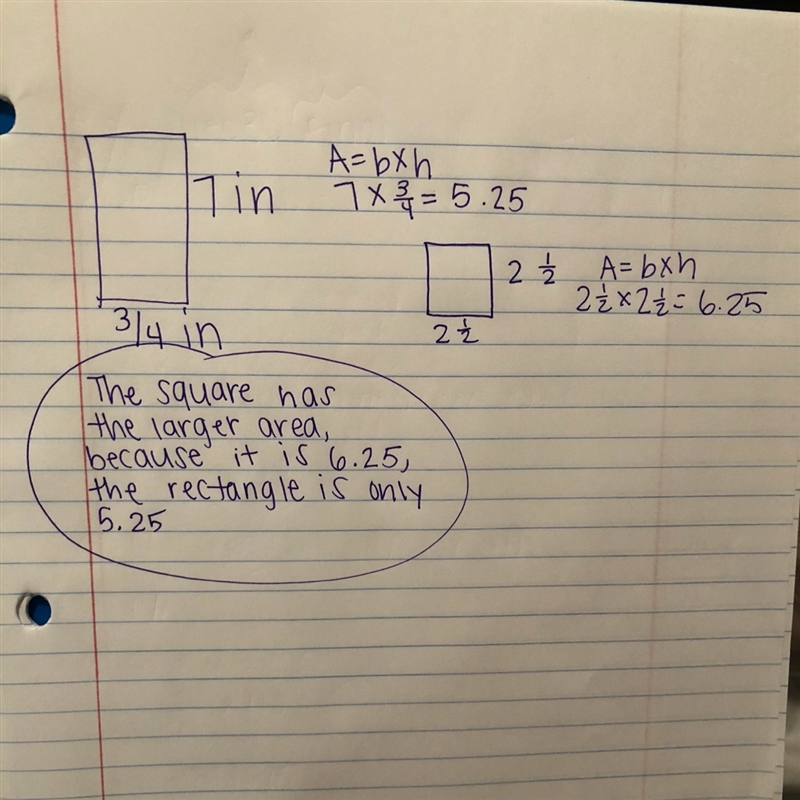 7 in
A=bxh
7 x 3/4 = 5.25
3/4 in
2 1/2
A=bxh
2 1/2 x 2 1/2 = 6.25
2 1/2
The square has
the larger area,
because it is 6.25,
the rectangle is only
5.25